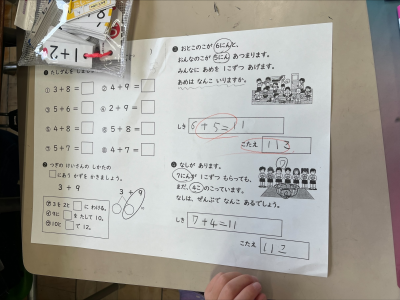 1+2
8
① 3+8=
② 4+9=
③ 5+6=
④ 2+9=
⑤ 4+8=
⑥ 5+8=
⑦ 5+7=
⑧ 4+7=
つぎの けいさんの しかたの
□にあう かずを かきましょう。
3+9
3 + 9
㋐ 3を 2と □に わける。
㋑ 9に □を たして 10。
㋒ 10と □で 12。
おとこのこが 6にんと、
おんなのこが 5にん あつまります。
みんなに あめを 1こずつ あげます。
あめは なんこ いりますか。
しき 6+5=11
こたえ 11こ
なしが あります。
7にんが 1こずつ もらっても、
まだ、4こ のこっています。
なしは、ぜんぶで なんこ あるでしょう。
⑦
しき 7+4=11
こたえ 11こ